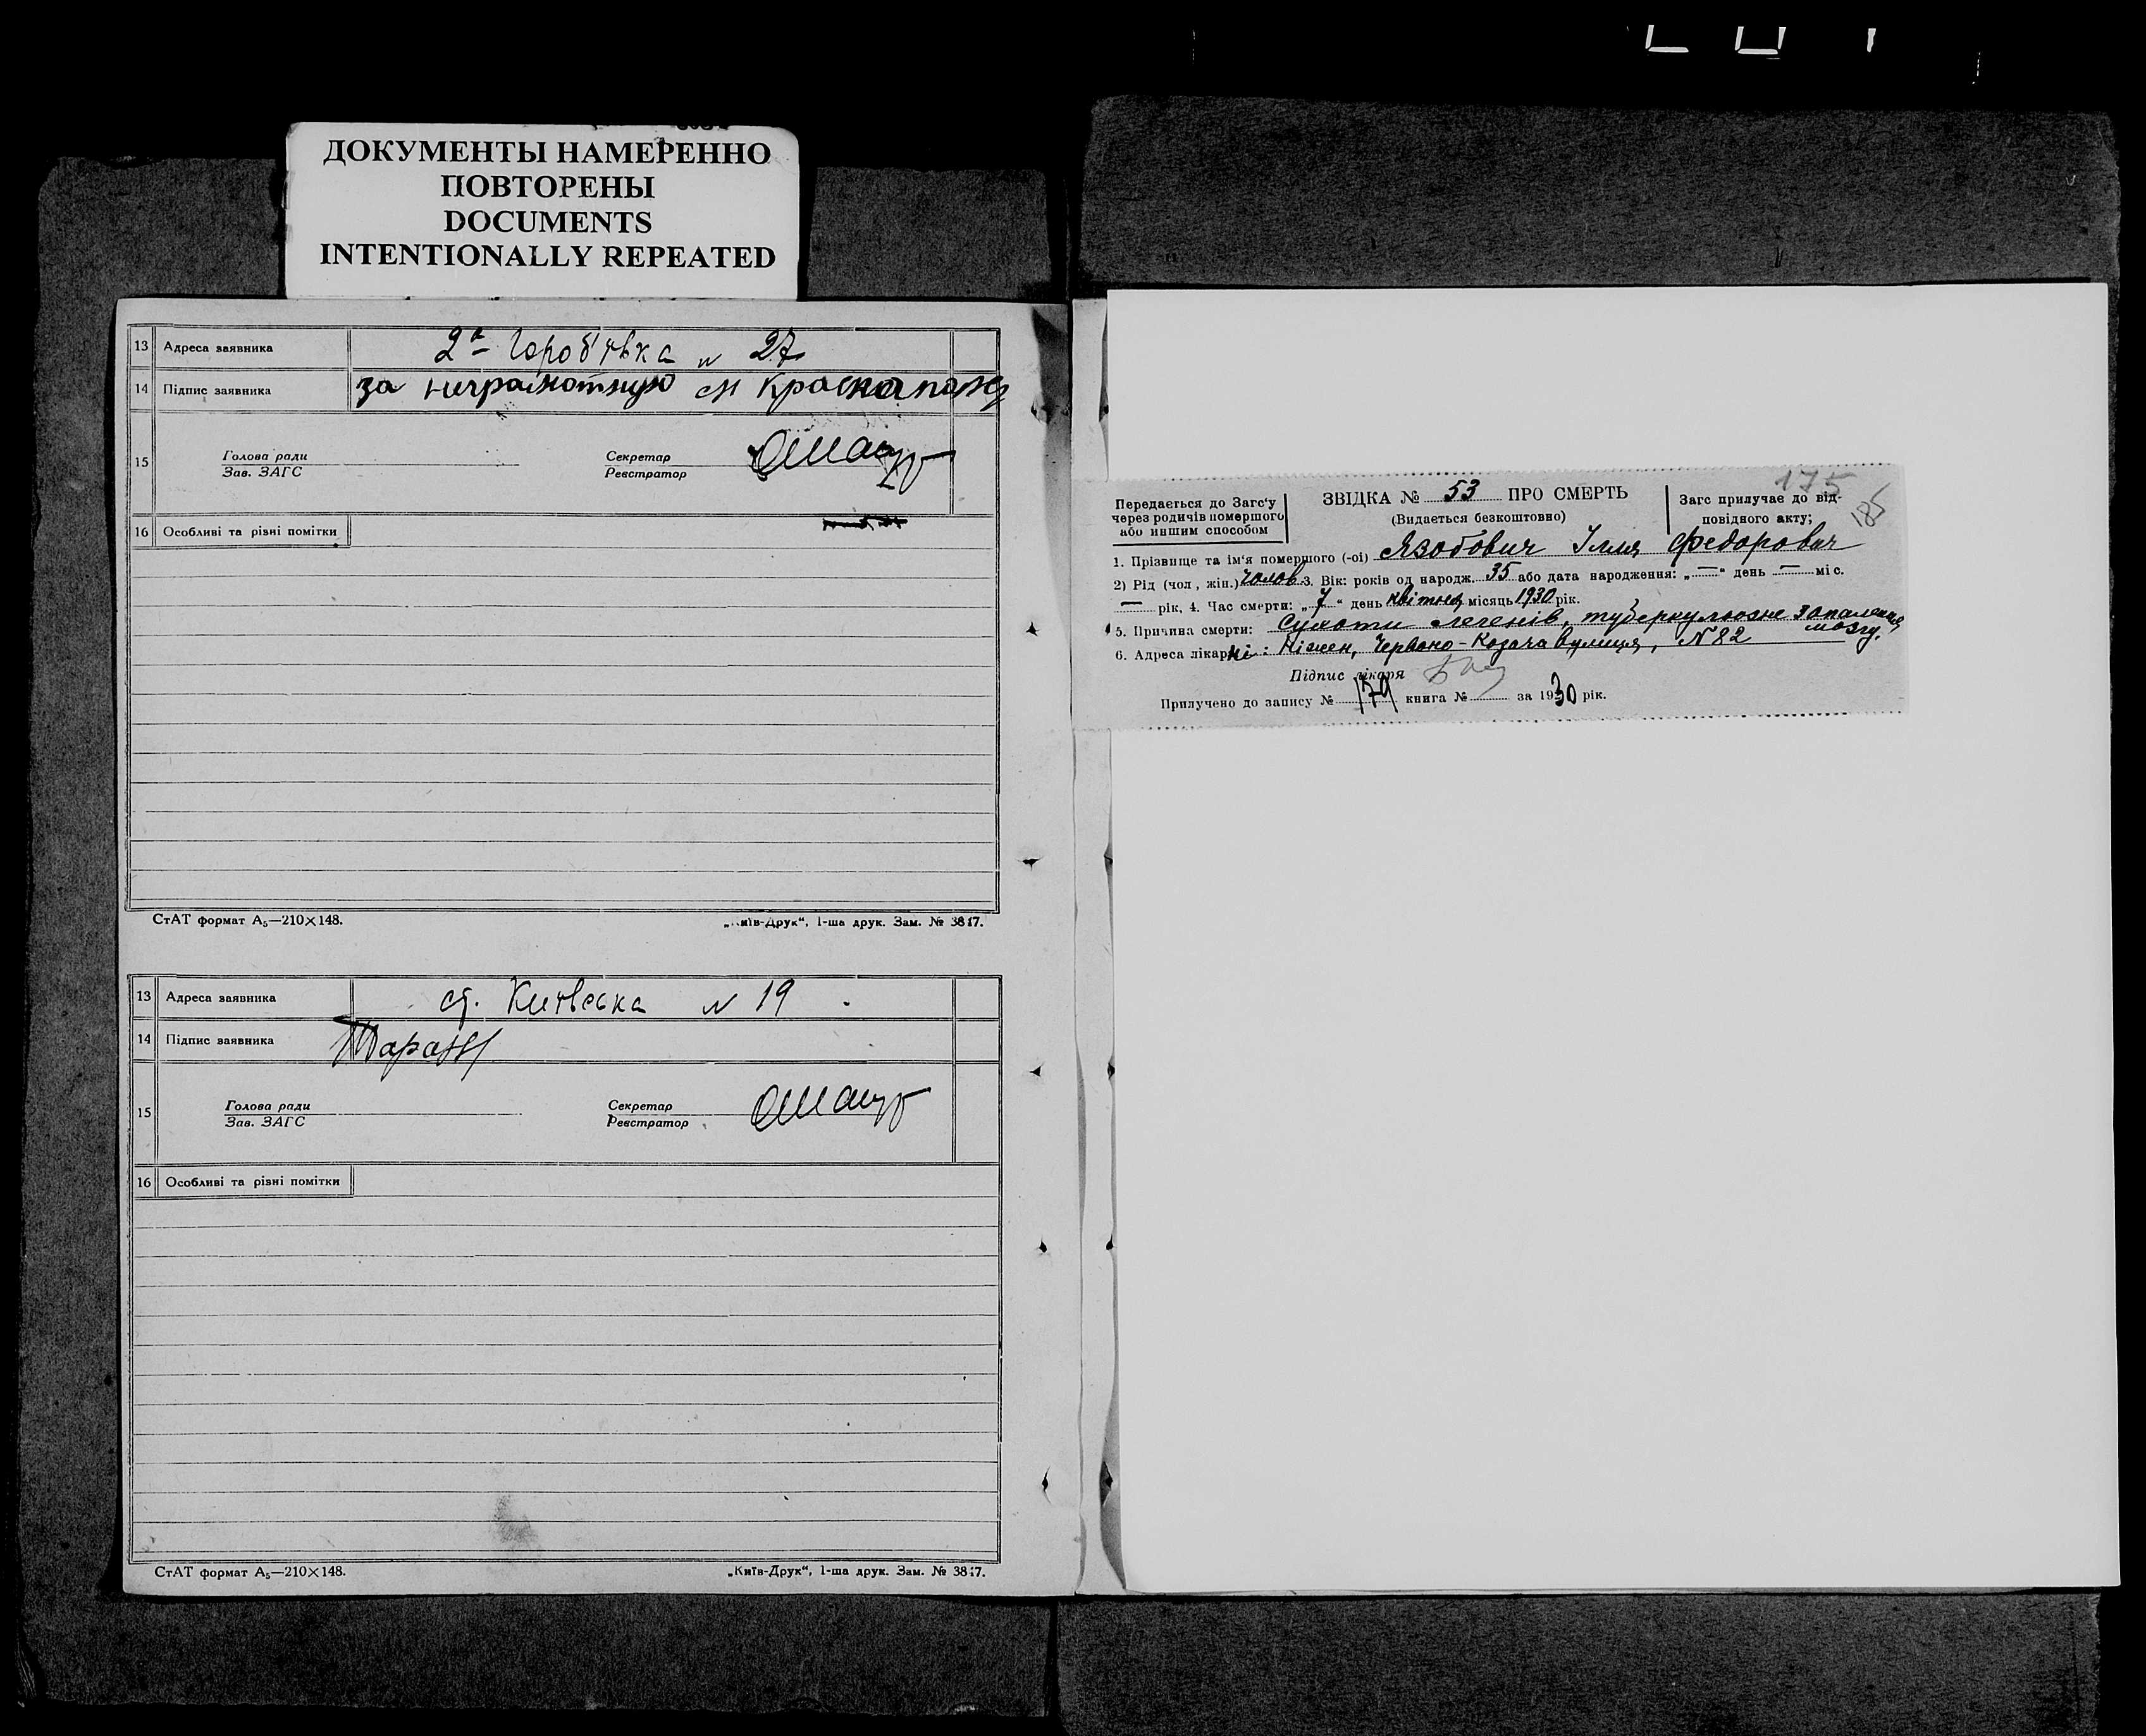 ДОКУМЕНТЫ НАМЕРЕННО
ПОВТОРЕНЫ
DOCUMENTS
INTENTIONALLY REPEATED
13 Адреса заявника 2а Гороб'ївка N 27
14 Підпис заявника за неграмотную
15 Голова ради Секретар
Зав. ЗАГС Реєстратор
16 Особливі та різні помітки
СтАТ формат А5—210×148. „Київ-Друк“, 1-ша друк. Зам. № 3817.
13 Адреса заявника ст. Київська N 19
14 Підпис заявника
15 Голова ради Секретар
Зав. ЗАГС Реєстратор
16 Особливі та різні помітки
СтАТ формат А5—210×148. „Київ-Друк“, 1-ша друк. Зам. № 3817.
175
185
Передається до Загс'у
через родичів помершого
або иншим способом
ЗВІДКА № 53 ПРО СМЕРТЬ
(Видається безкоштовно)
Загс прилучає до від-
повідного акту;
1. Прізвище та ім'я помершого (-ої) Язобович Ілля Федорович
2) Рід (чол, жін.) чолов. 3. Вік: років од народж. 35 або дата народження: „—“ день — міс.
— рік, 4. Час смерти: „7“ день квітня місяць 1930 рік.
5. Причина смерти: Сухоти легенів, туберкульозне запалення
мозгу.
6. Адреса лікарні: Ніжен, Червоно-Козача вулиця, N 82
Підпис лікаря
Прилучено до запису № 179 книга № за 1930 рік.